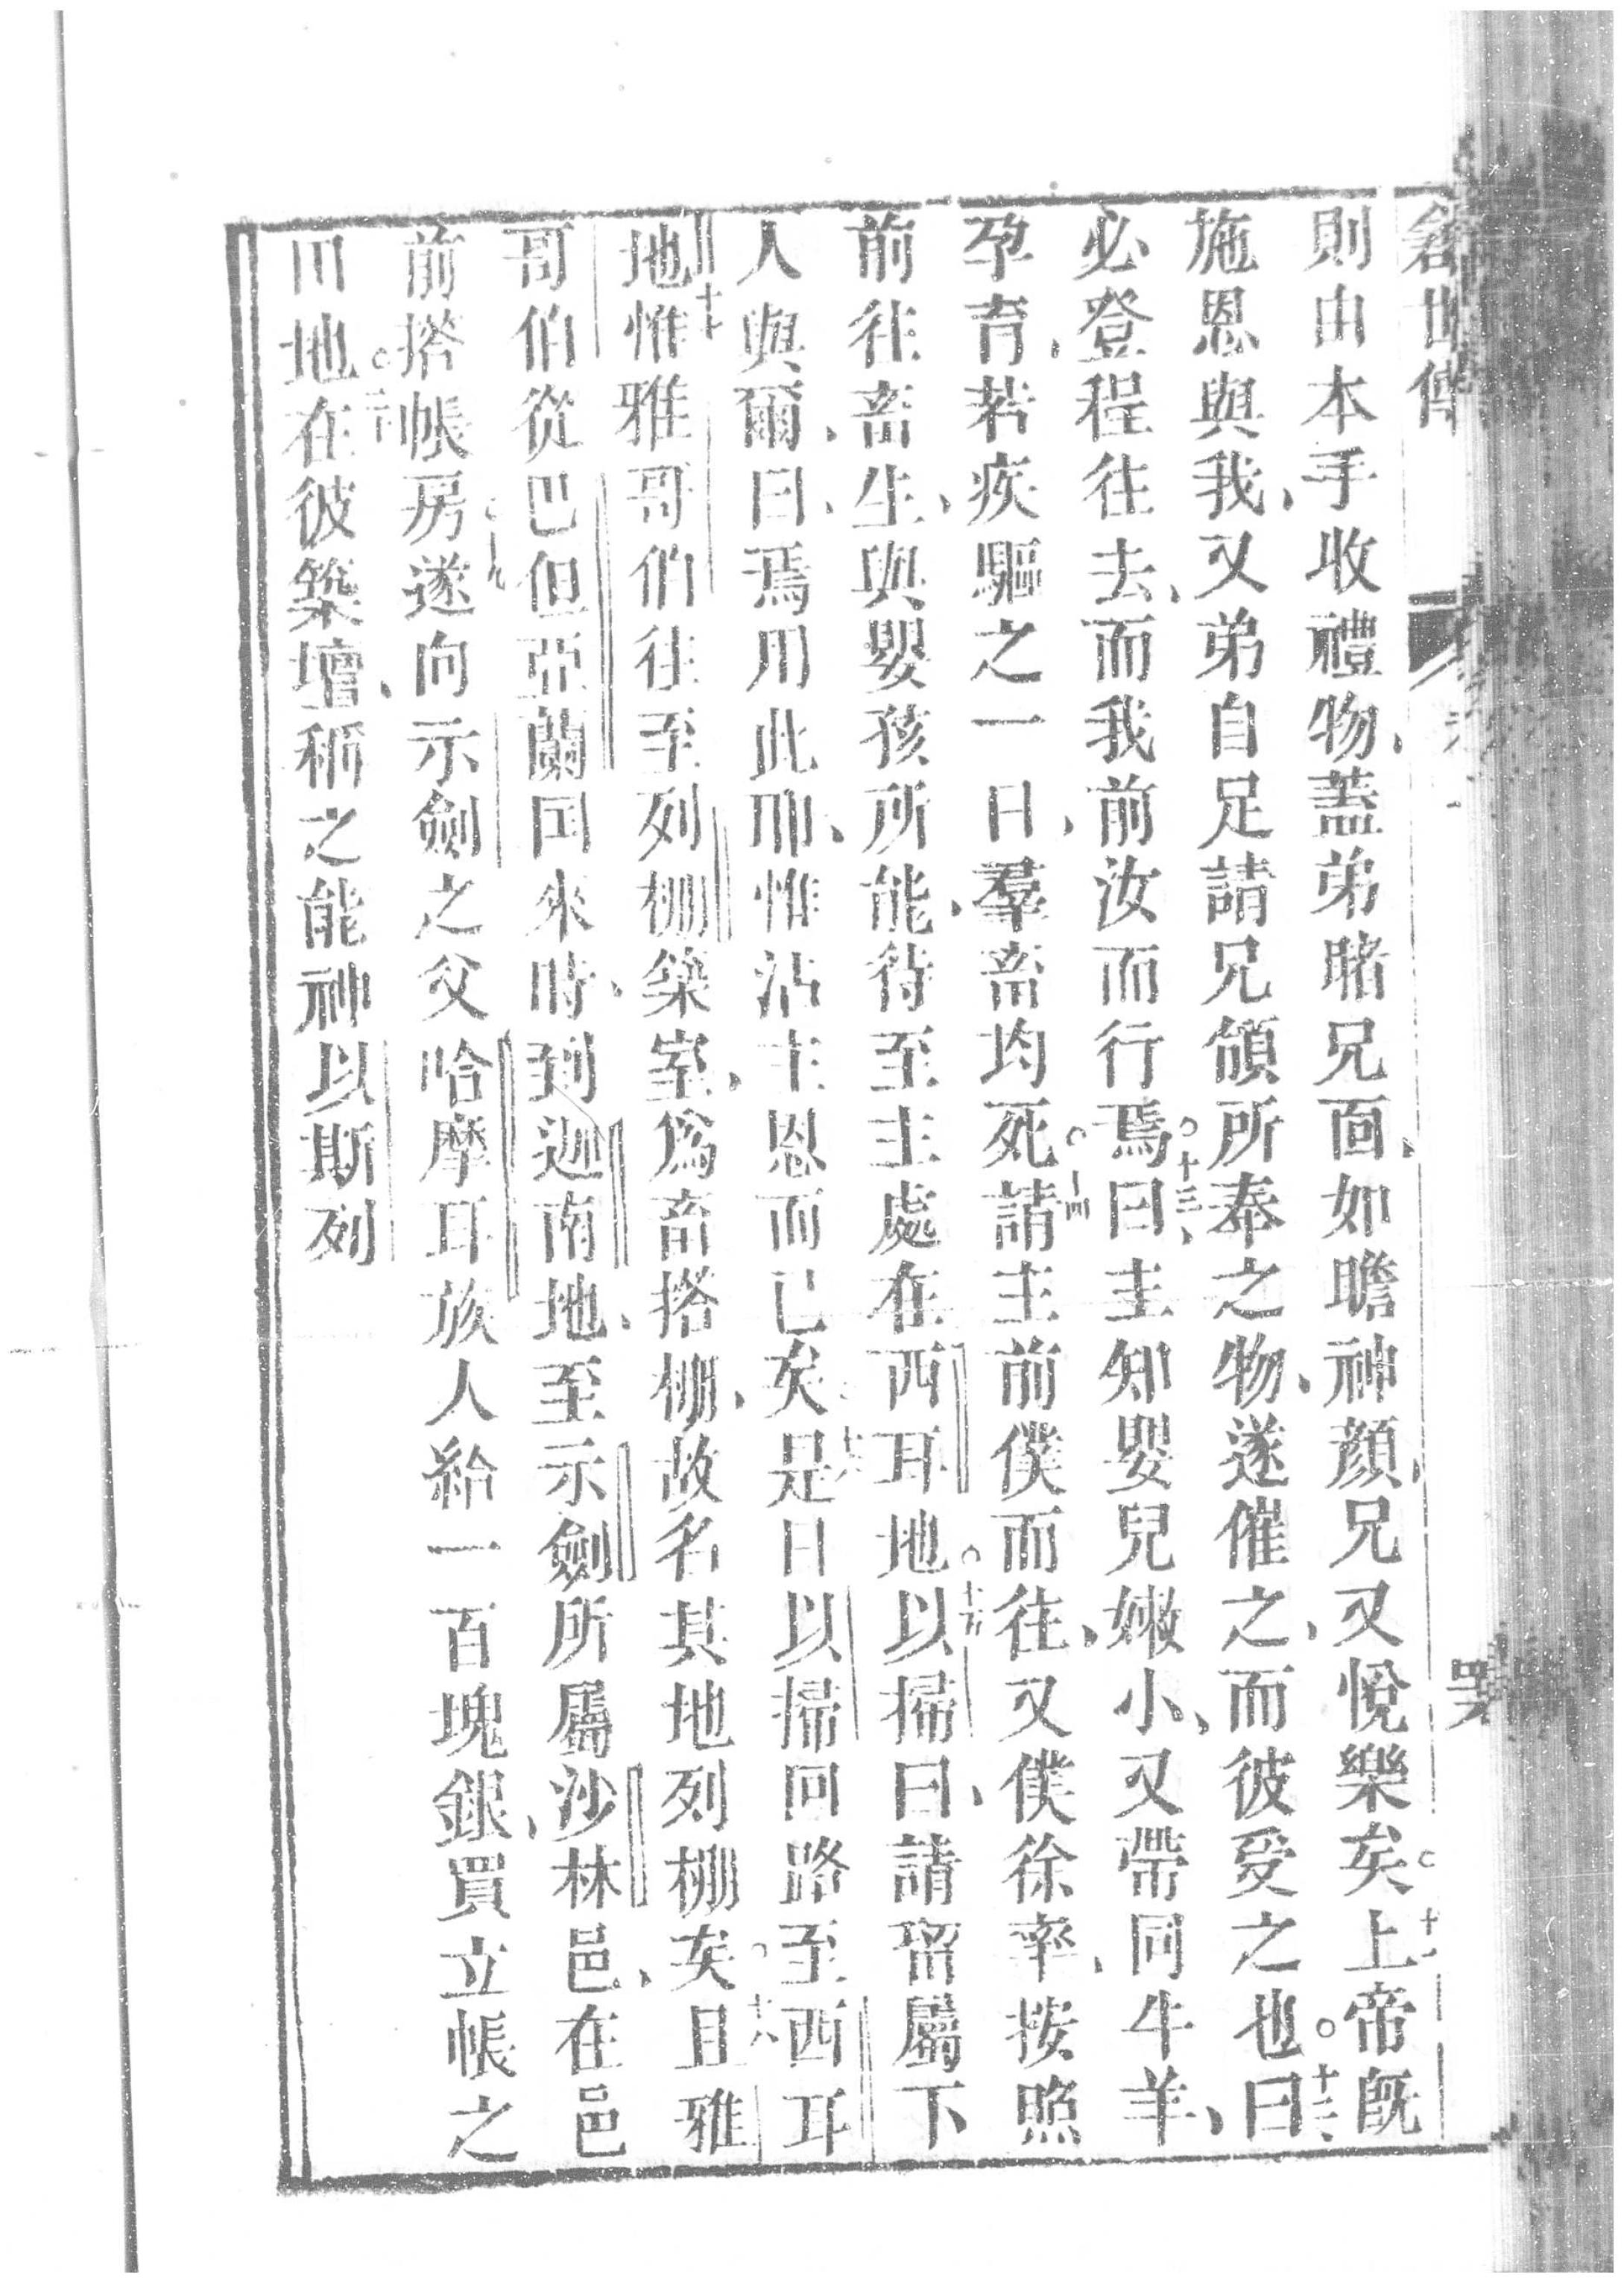 創世傳
則由本手收禮物、蓋弟睹兄面、如瞻神顔、兄又悅樂矣。十一上帝旣
施恩與我、又弟自足、請兄領所奉之物、遂催之、而彼受之也。十二曰、
必登程往去、而我前汝而行焉。十三曰、主知嬰兒嫩小、又帶同牛羊、
孕育、若疾驅之一日、羣畜均死。十四請主前僕而往、又僕徐率、按照
前往畜生、與嬰孩所能、待至主處在西耳地。十五以掃曰、請留屬下
人與爾、曰、焉用此耶、惟沾主恩而已矣。十六是日以掃回路至西耳
地。十七惟雅哥伯往至列棚築室、爲畜搭棚、故名其地列棚矣。十八且雅
哥伯從巴但亞蘭回來時、到迦南地、至示劍所屬沙林邑、在邑
前搭帳房。十九遂向示劍之父哈摩耳族人、給一百塊銀、買立帳之
田地。二十在彼築壇、稱之能神以斯列